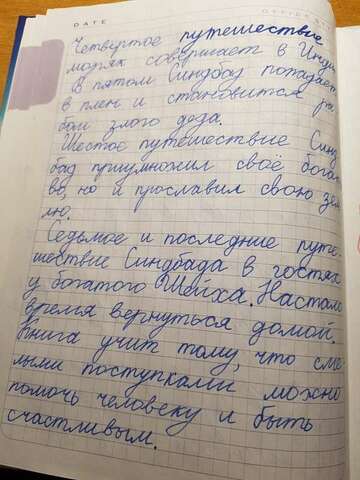 DATE
Четвёртое путешествие
морях совершает в Инди
В пятом Синдбад попадает
в плен и становится ра
бом злого деда.
Шестое путешествие Синд
бад приумножил своё богат
во, но и прославил свою зем
лю.
Седьмое и последние путе-
шествие Синдбада в гостях
у богатого Шейха. Настало
время вернуться домой.
Книга учит тому, что сме
лыми поступками можно
помочь человеку и быть
счастливым.